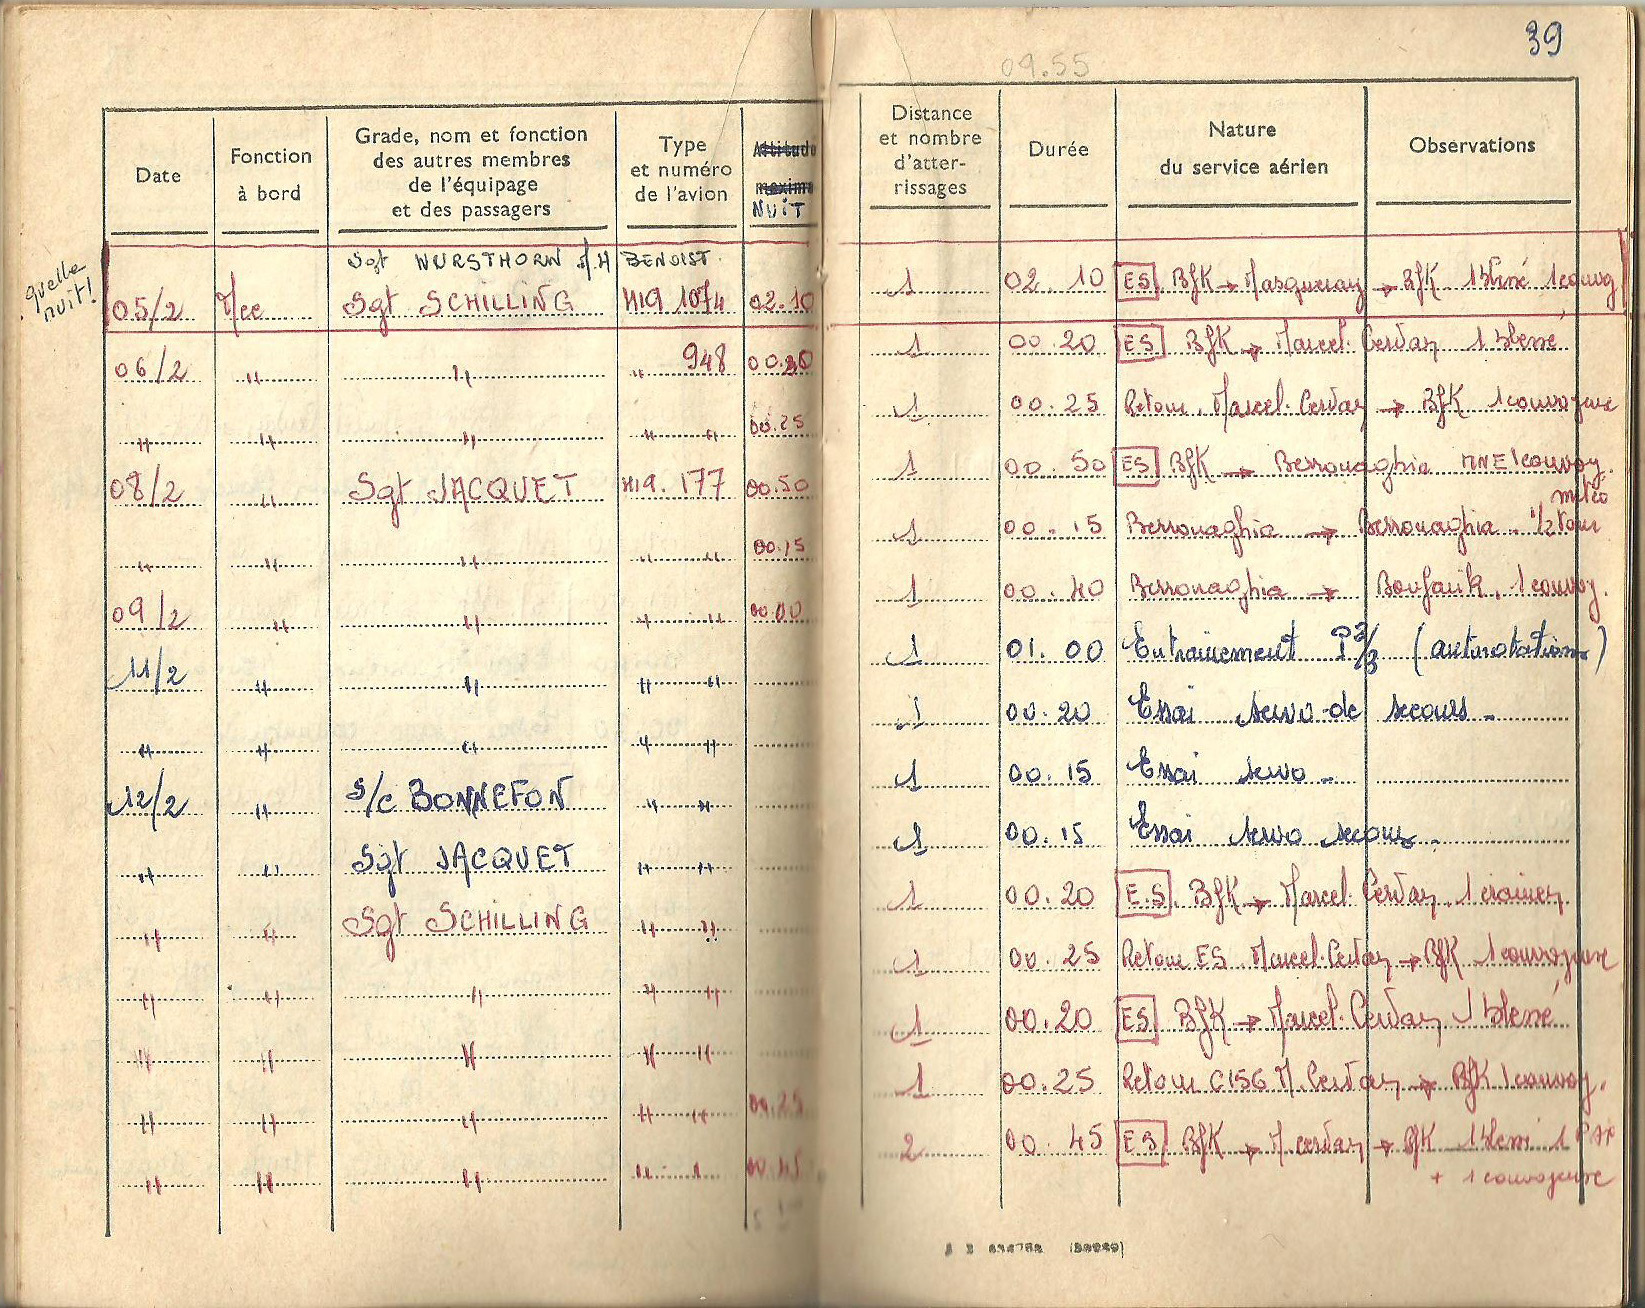 39
09.55
Date
Fonction
à bord
Grade, nom et fonction
des autres membres
de l'équipage
et des passagers
Type
et numéro
de l'avion
Altitude
maxima
NUIT
Distance
et nombre
d'atter-
rissages
Durée
Nature
du service aérien
Observations
quelle
nuit!
Sgt WURSTHORN BENOIST
05/2 Mec Sgt SCHILLING H19 1074 02.10 1 02.10 ES BFK → Masqueray → BFK 1 blessé 1 convoy
06/2 " " " 948 00.20 1 00.20 ES BFK → Marcel. Cerdan 1 blessé
" " " " " 00.25 1 00.25 Retour. Marcel. Cerdan → BFK 1 convoyeuse
08/2 " Sgt JACQUET H19. 177 00.50 1 00.50 ES BFK → Berrouaghia 1 convoy.
météo
" " " " " 00.15 1 00.15 Berrouaghia → Berrouaghia - 1/2 tour
09/2 " " " " 1 00.40 Berrouaghia → Boufarik. 1 convoy.
11/2 " " " " 1 01.00 Entrainement P2/3 (autorotations)
" " " " " 1 00.20 Essai servo-de secours -
12/2 " S/c BONNEFON " " 1 00.15 Essai servo -
" " Sgt JACQUET " " 1 00.15 Essai servo secours -
" " Sgt SCHILLING " " 1 00.20 E.S BFK → Marcel. Cerdan.
" " " " " 1 00.25 Retour ES Marcel-Cerdan → BFK 1 convoyeuse
" " " " " 1 00.20 ES BFK → Marcel. Cerdan 1 blessé
" " " " " 00.25 1 00.25 Retour M. Cerdan → BFK 1 convoy.
" " " " " 00.45 2 00.45 ES BFK → M. cerdan → BFK 1 blessé 1 PAX
+ 1 convoyeuse